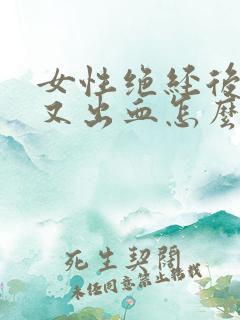 女性绝经後
又出血怎麽
死生契闊
未经同意禁止转载